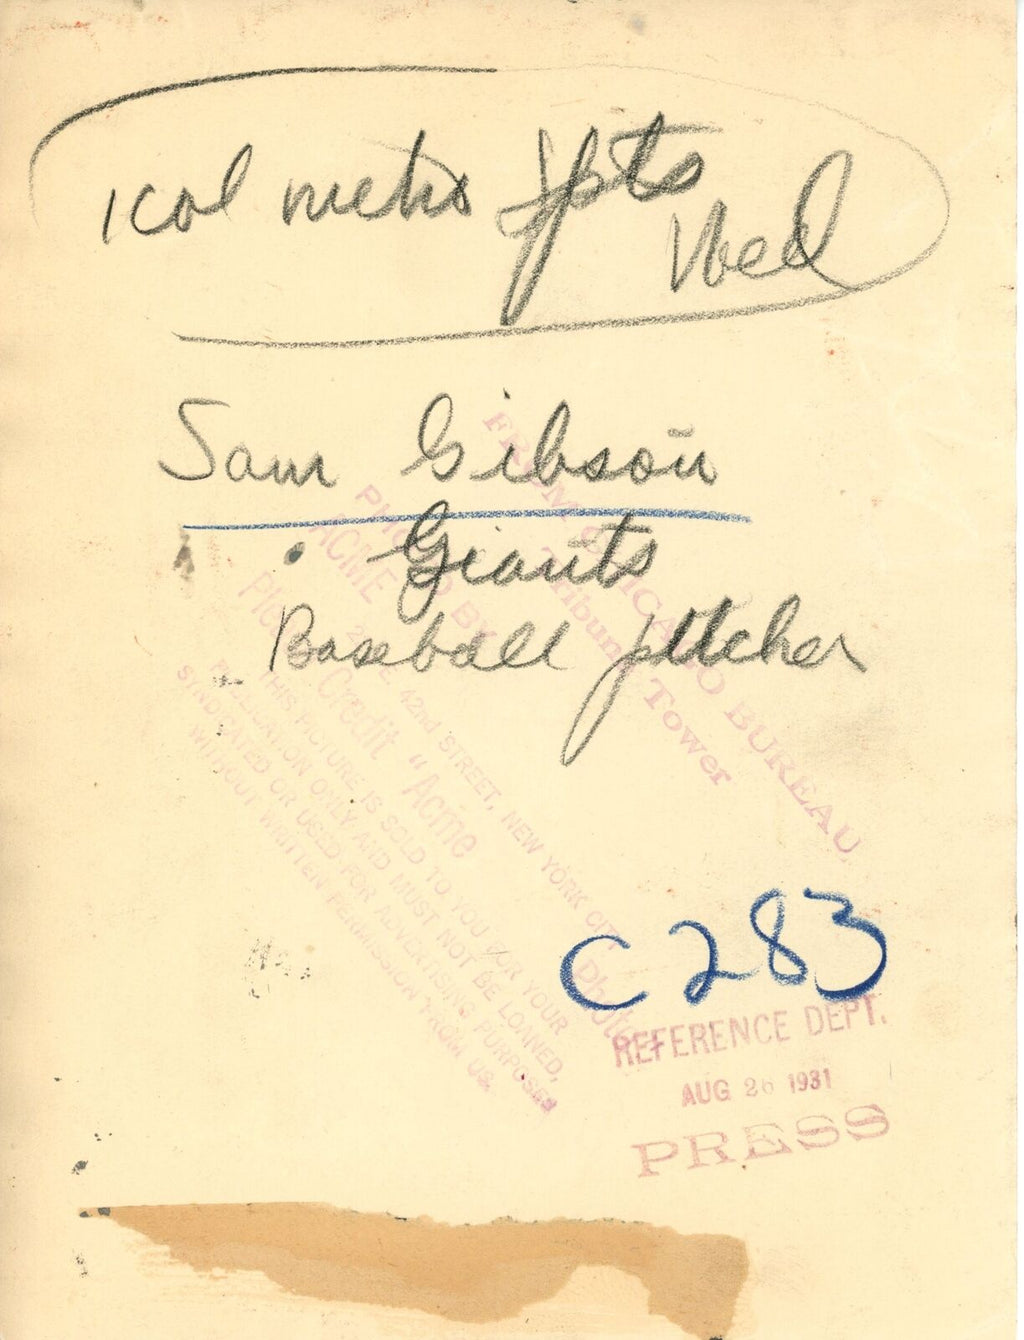 1 col metro spts
Wed
Sam Gibson
Giants
Baseball pitcher
FROM CHICAGO BUREAU
Tribune Tower
PHOTO BY
ACME
220 E. 42nd STREET, NEW YORK CITY
Please Credit "Acme Photo"
THIS PICTURE IS SOLD TO YOU FOR YOUR
PUBLICATION ONLY AND MUST NOT BE LOANED,
SYNDICATED OR USED FOR ADVERTISING PURPOSES
WITHOUT WRITTEN PERMISSION FROM US.
C283
REFERENCE DEPT.
AUG 26 1931
PRESS